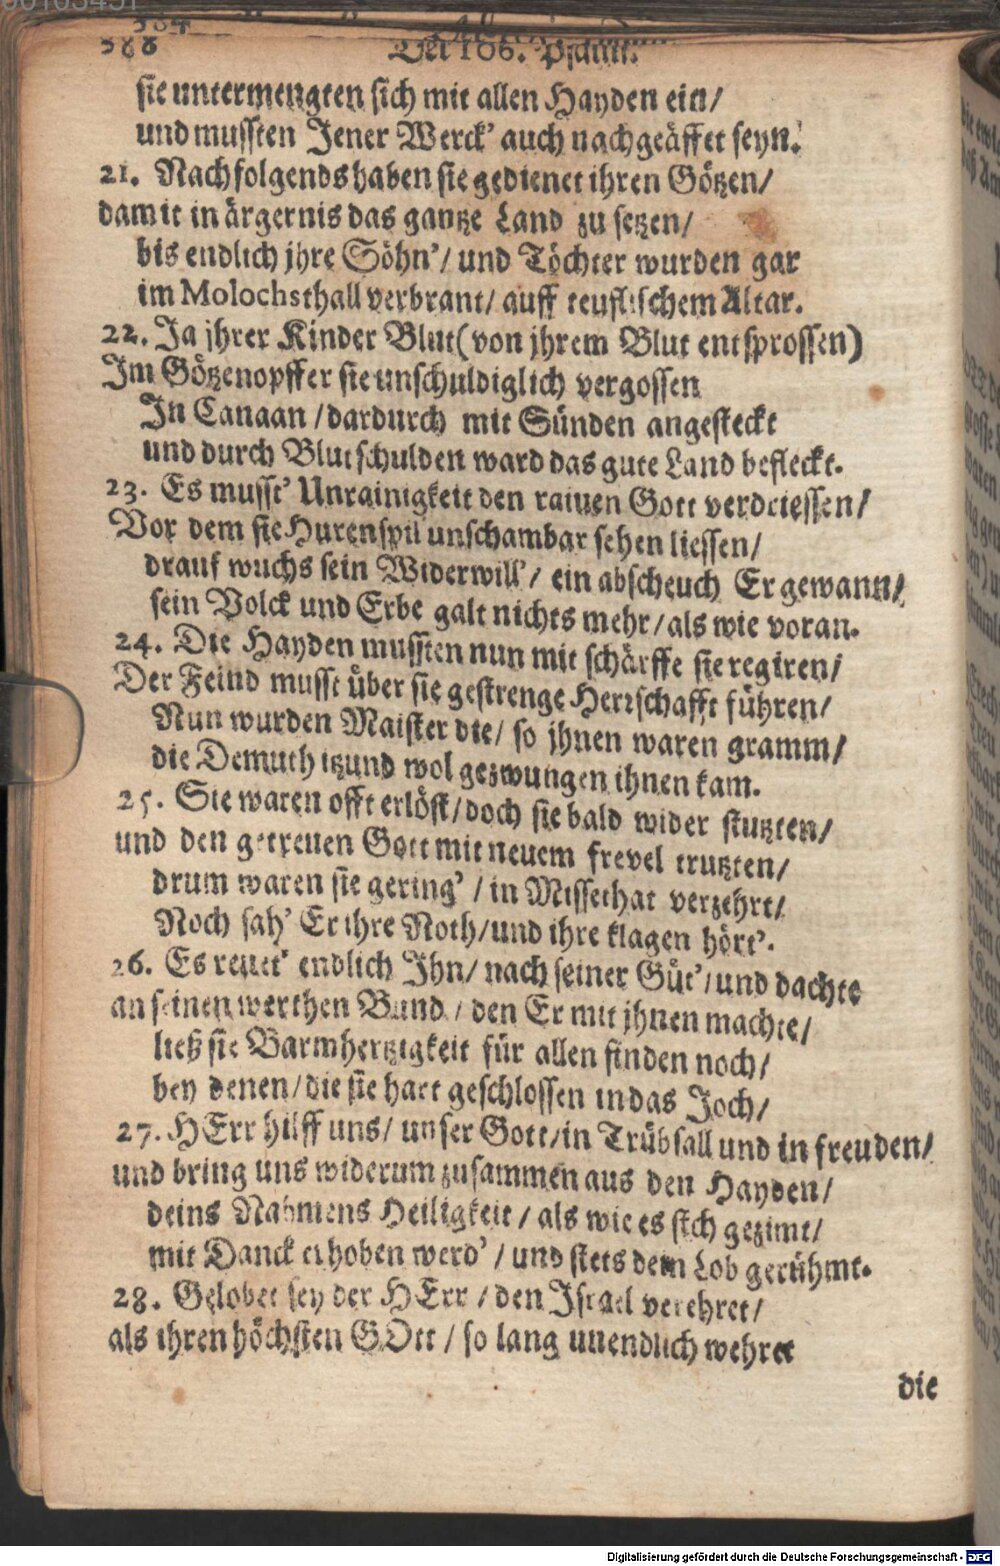 388 Der 106. Psalm.
sie untermengten sich mit allen Hayden ein/
und mussten Jener Werck' auch nachgeäffet seyn.
21. Nachfolgends haben sie gedienet ihren Götzen/
damit in ärgernis das gantze Land zu setzen/
bis endlich jhre Söhn'/ und Töchter wurden gar
im Molochsthall verbrant/ auff teuflischem Altar.
22. Ja jhrer Kinder Blut (von jhrem Blut entsprossen)
Im Götzenopffer sie unschuldiglich vergossen
In Canaan / dardurch mit Sünden angesteckt
und durch Blutschulden ward das gute Land befleckt.
23. Es musst' Unrainigkeit den rainen Gott verdriessen/
Vor dem sie Hurenspil unschambar sehen liessen/
drauf wuchs sein Widerwill'/ ein abscheuch Er gewann/
sein Volck und Erbe galt nichts mehr/ als wie voran.
24. Die Hayden mussten nun mit schärffe sie regiren/
Der Feind musst über sie gestrenge Herrschafft führen/
Nun wurden Maister die/ so jhnen waren gramm/
die Demuth itzund wol gezwungen ihnen kam.
25. Sie waren offt erlöst/ doch sie bald wider stutzten/
und den getreuen Gott mit neuem frevel trutzten/
drum waren sie gering'/ in Missethat verzehrt/
Noch sah' Er ihre Noth/ und ihre klagen hört'.
26. Es reuet' endlich Ihn/ nach seiner Güt'/ und dachte
an seinen werthen Bund / den Er mit jhnen machte/
ließ sie Barmhertzigkeit für allen finden noch/
bey denen/ die sie hart geschlossen in das Joch/
27. HErr hilff uns/ unser Gott/ in Trübsall und in freuden/
und bring uns widerum zusammen aus den Hayden/
deins Nahmens Heiligkeit / als wie es sich gezimt/
mit Danck erhoben werd' / und stets dein Lob gerühmt.
28. Gelobet sey der HErr / den Israel verehret/
als ihren höchsten GOtt / so lang unendlich wehret
die
Digitalisierung gefördert durch die Deutsche Forschungsgemeinschaft - DFG